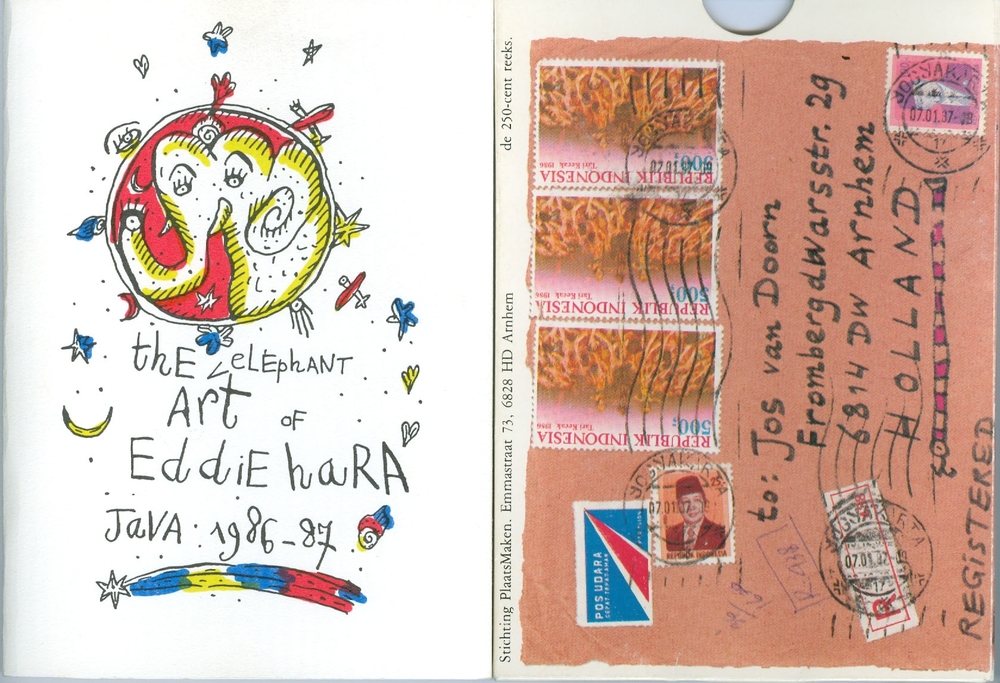 thE elEphANT
Art OF
EddiE haRA
JaVA : 1986-87
Stichting PlaatsMaken. Emmastraat 73, 6828 HD Arnhem
de 250-cent reeks.
to: Jos van Doorn
Frombergdwarsstr. 29
6814 DW Arnhem
HOLLAND
REGISTERED
500,-
REPUBLIK INDONESIA
Tari Kecak 1986
500,-
REPUBLIK INDONESIA
Tari Kecak 1986
500,-
REPUBLIK INDONESIA
Tari Kecak 1986
YOGYAKARTA
07.01.87-
17
YOGYAKARTA
07.01.87
REPUBLIK INDONESIA
POS UDARA
R
YOGYAKARTA
07.01.87
17